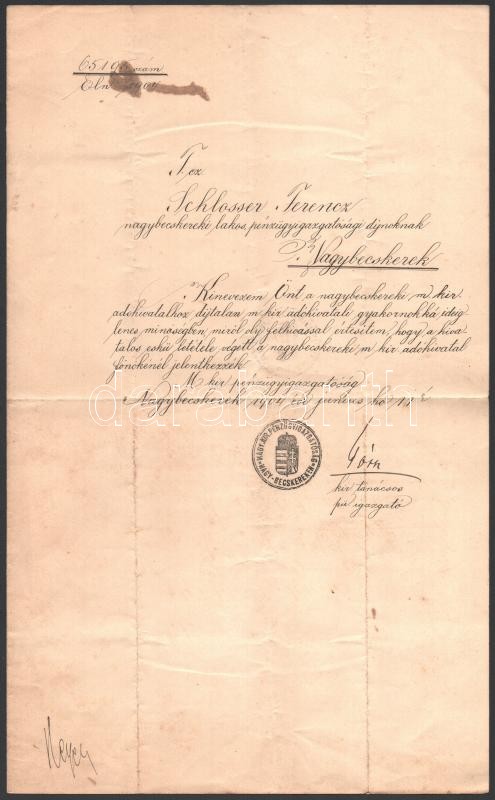 szám
Eln. 1904
T. cz
Schlosser Ferencz
nagybecskereki lakos, pénzügyigazgatósági dijnoknak
Nagybecskerek
Kinevezem Önt a nagybecskereki m. kir.
adóhivatalhoz dijtalan m. kir. adóhivatali gyakornokká ideig-
lenes minőségben, miről oly felhivással értesitem, hogy a hiva-
talos eskü letétele végett a nagybecskereki m. kir. adóhivatal
főnökénél jelentkezzék.
M. kir. pénzügyigazgatóság
Nagybecskerek, 1904 évi junius hó
MAGY. KIR. PÉNZÜGYIGAZGATÓSÁG
NAGY-BECSKEREKEN
kir. tanácsos
pü. igazgató
darabanth